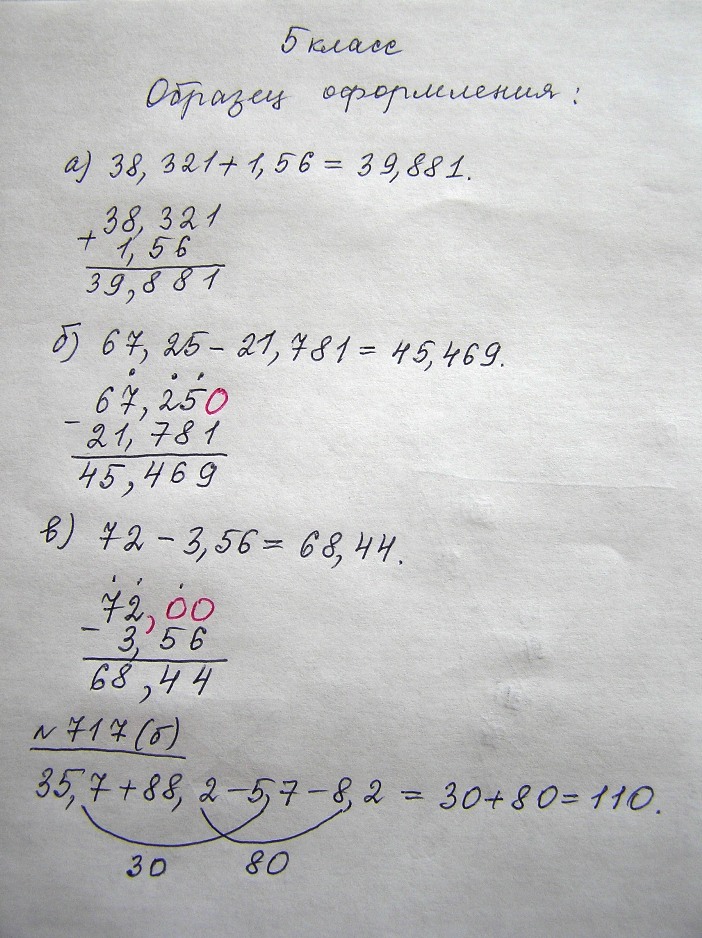 5 класс
Образец оформления:
а) 38,321+1,56=39,881.
38,321
+
1,56
39,881
б) 67,25-21,781=45,469.
67,250
-
21,781
45,469
в) 72-3,56=68,44.
72,00
-
3,56
68,44
N 717(б)
35,7+88,2-5,7-8,2=30+80=110.
30 80